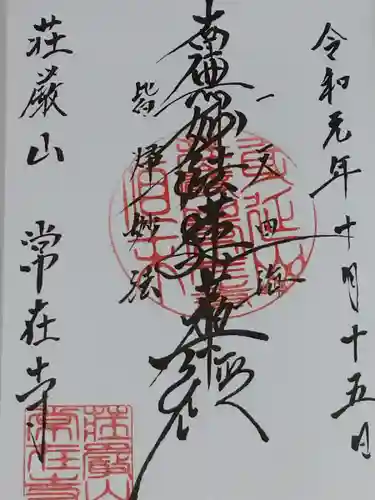 令和元年十月十五日
一天四海
南無妙法蓮華経
皆帰妙法
荘厳山 常在寺
荘嚴山
常在寺